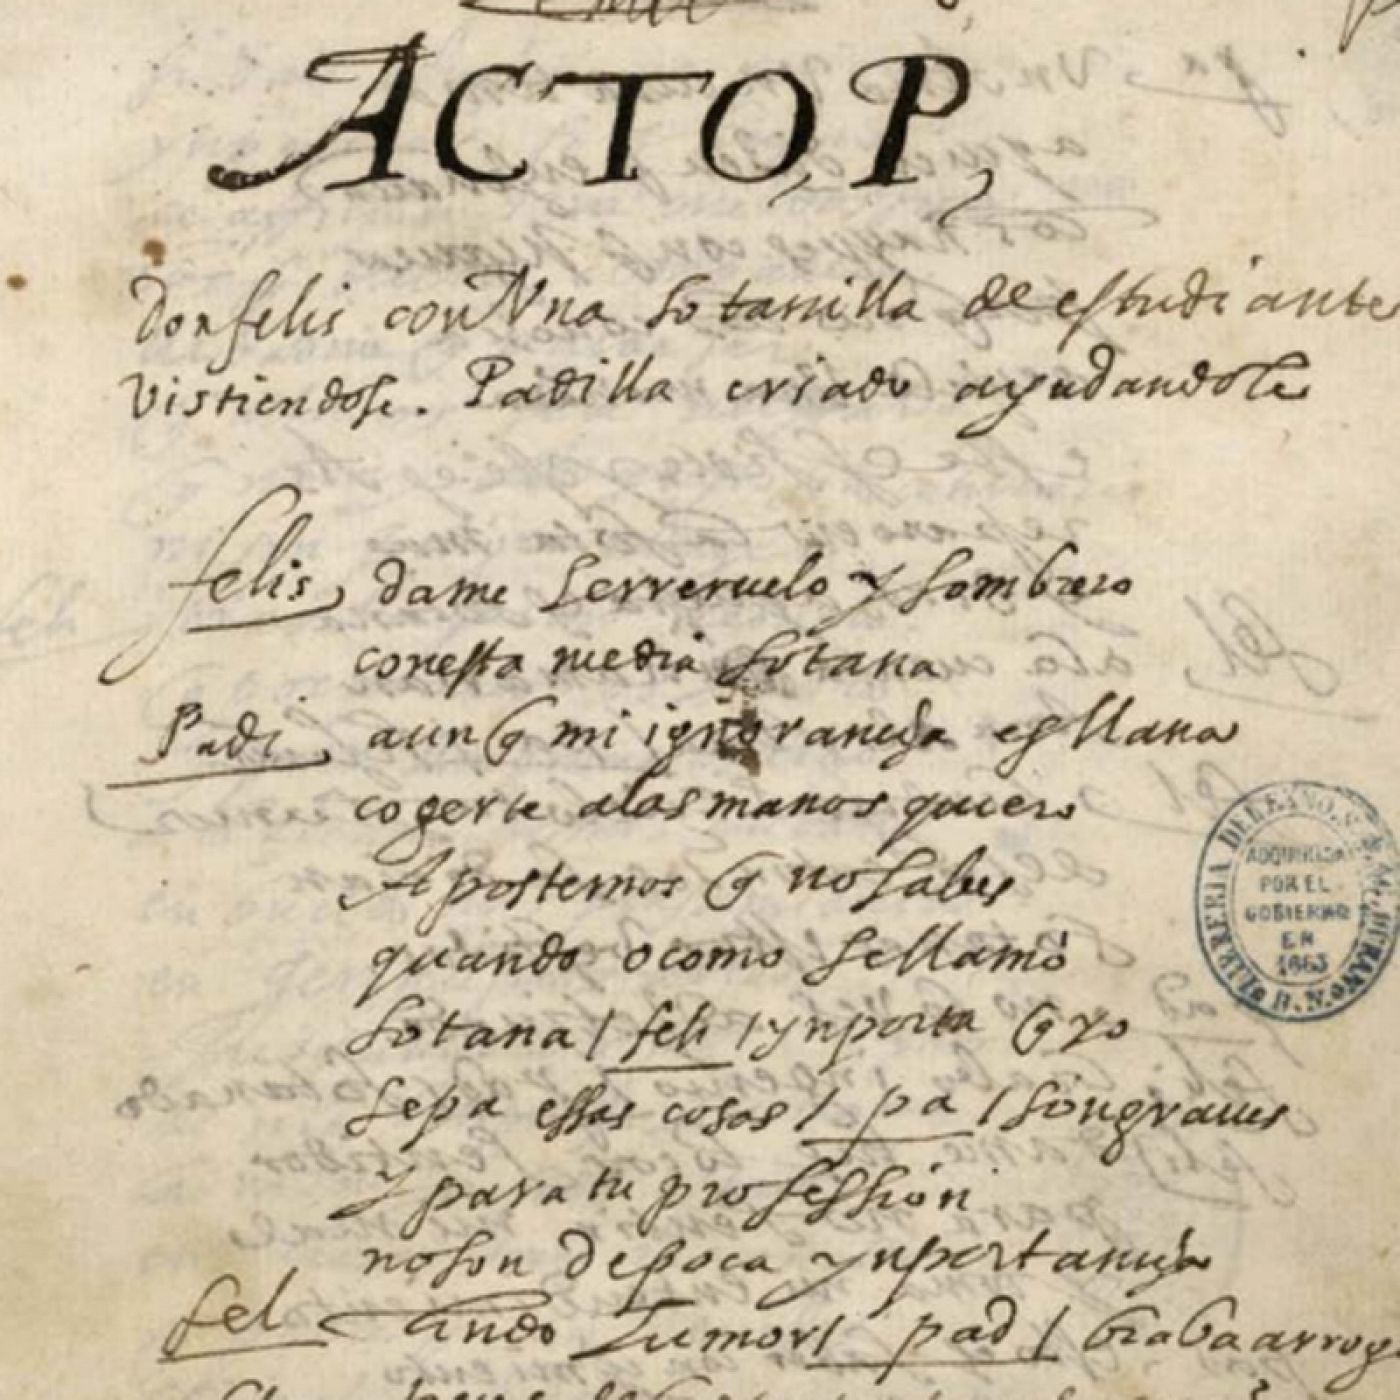 ACTO, P,
Don felis con Vna sotanilla de estudiante
vistiendose. Padilla criado ayudandole
felis, dame ferreruelo y sombrero
con esta media sotana
Padi, aunq mi ignorancia es llana
cogerte a las manos quiero
Apostemos q no sabes
quando o como se llamó
sotana / feli / ynporta q yo
sepa essas cosas / pa / son graues
y para tu profession
no son de poca ynportancia
fel lindo humor / pad / braba arrog
ADQUIRIDA
POR EL
GOBIERNO
EN
1863